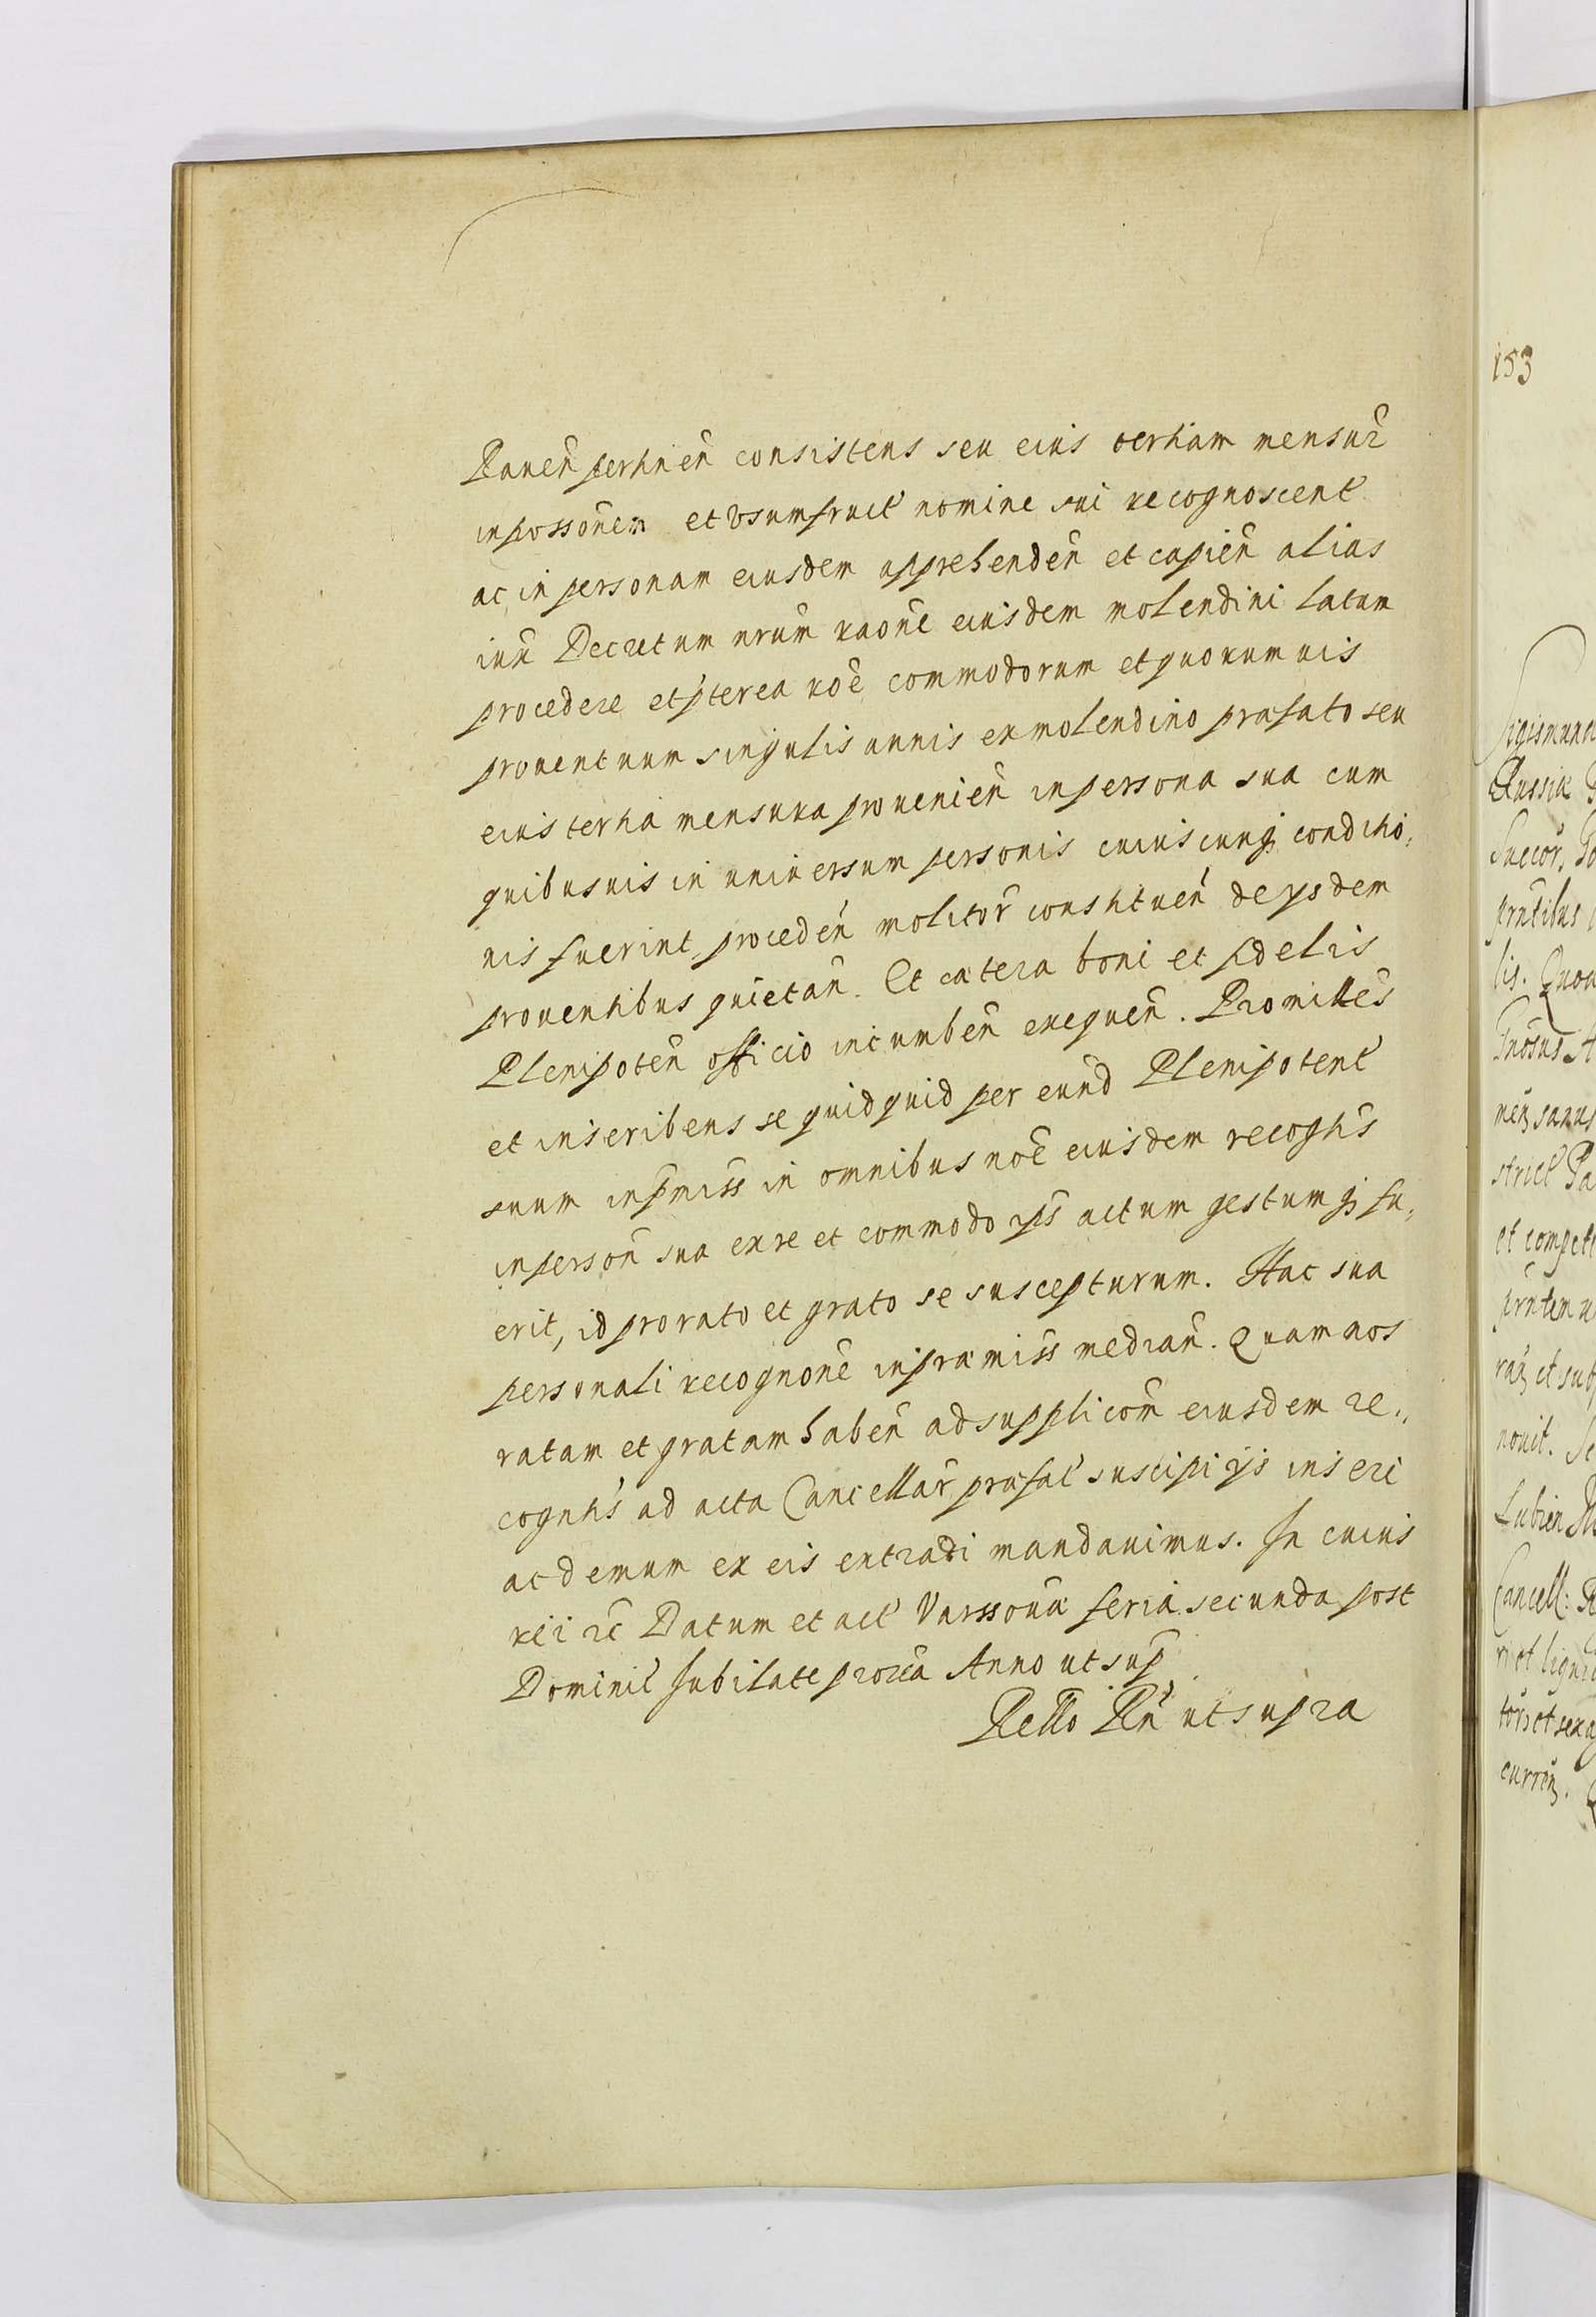 Raven̄ pertinen̄ consistens seu eius tertiam mensur̄
in posson̄em et vsumfruct̄ nomine sui recognoscent̄
ac in personam eiusdem apprehenden̄ et capien̄ alias
iux̄ Decretum nr̄um raōne eiusdem molendini latum
procedere et p̄terea rōe commodorum et quorumuis
prouentuum singulis annis ex molendino præfato seu
eius tertia mensura prouenien̄ in persona sua cum
quibusuis in uniuersum personis cuiuscunq; conditio,
nis fuerint, proceden̄ molitor̄ constituen̄ de ysdem
prouentibus quietan̄. Et cætera boni et fidelis
Plenipoten̄ officio incumben̄ exequen̄. Promitten̄s
et inscribens se quidquid per eund̄ Plenipotent̄
suum in p̄miss̄ in omnibus nōe eiusdem recogn̄tis
in person̄ sua ex re et commodo ips̄ actum gestumq; fu,
erit, id pro rato et grato se suscepturum. Hac sua
personali recognōne in præmiss̄ median̄. Quam nos
ratam et gratam haben̄ ad supplicōm eiusdem re,,
cogn̄tis ad acta Cancellar̄ præfat̄ suscipi ijs inseri
ac demum ex eis extradi mandauimus. In cuius
rei ꝛc̄ Datum et act̄ Varssouiæ feria secunda post
Dominic̄ Jubilate prox̄a Anno ut sup̄
Re̅l̅l̅o R̄n̄ ut supra
153
Russiæ
lis. Quod
Cancell: